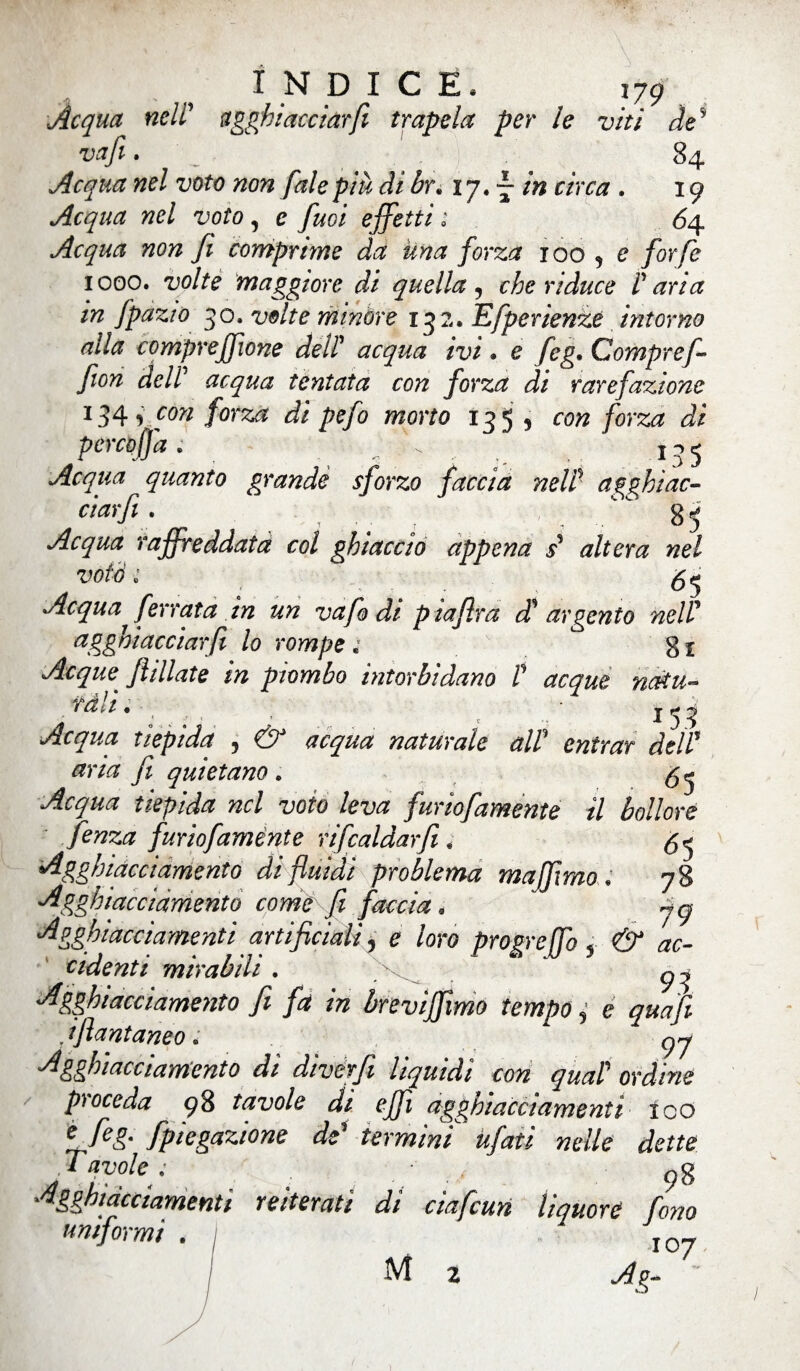 INDICE. 179
Acqua nell' agghiacciarsi trapela per le viti de'
vasi. 84
Acqua nel voto non sale più di br. 17. ½ in circa. 19
Acqua nel voto, e suoi effetti. 64
Acqua non si comprime da una forza 100, e forse
1000. volte maggiore di quella, che riduce l'aria
in spazio 30. volte minore 132. Esperienze intorno
alla compressione dell' acqua ivi. e seg. Compres-
sion dell' acqua tentata con forza di rarefazione
134, con forza di peso morto 135, con forza di
percossa. 135
Acqua quanto grande sforzo faccia nell' agghiac-
ciarsi. 85
Acqua raffreddata col ghiaccio appena s' altera nel
voto. 65
Acqua serrata in un vaso di piastra d' argento nell'
agghiacciarsi lo rompe. 81
Acque stillate in piombo intorbidano l' acque natu-
rali. 153
Acqua tiepida, & acqua naturale all' entrar dell'
aria si quietano. 65
Acqua tiepida nel voto leva furiosamente il bollore
senza furiosamente riscaldarsi. 65
Agghiacciamento di fluidi problema massimo. 78
Agghiacciamento come si faccia. 79
Agghiacciamenti artificiali, e loro progresso, & ac-
cidenti mirabili. 93
Agghiacciamento si fa in brevissimo tempo, e quasi
istantaneo. 97
Agghiacciamento di diversi liquidi con qual' ordine
proceda 98 tavole di essi agghiacciamenti 100
e seg. spiegazione de' termini usati nelle dette
Tavole. 98
Agghiacciamenti reiterati di ciascun liquore sono
uniformi. 107
M 2 Ag-